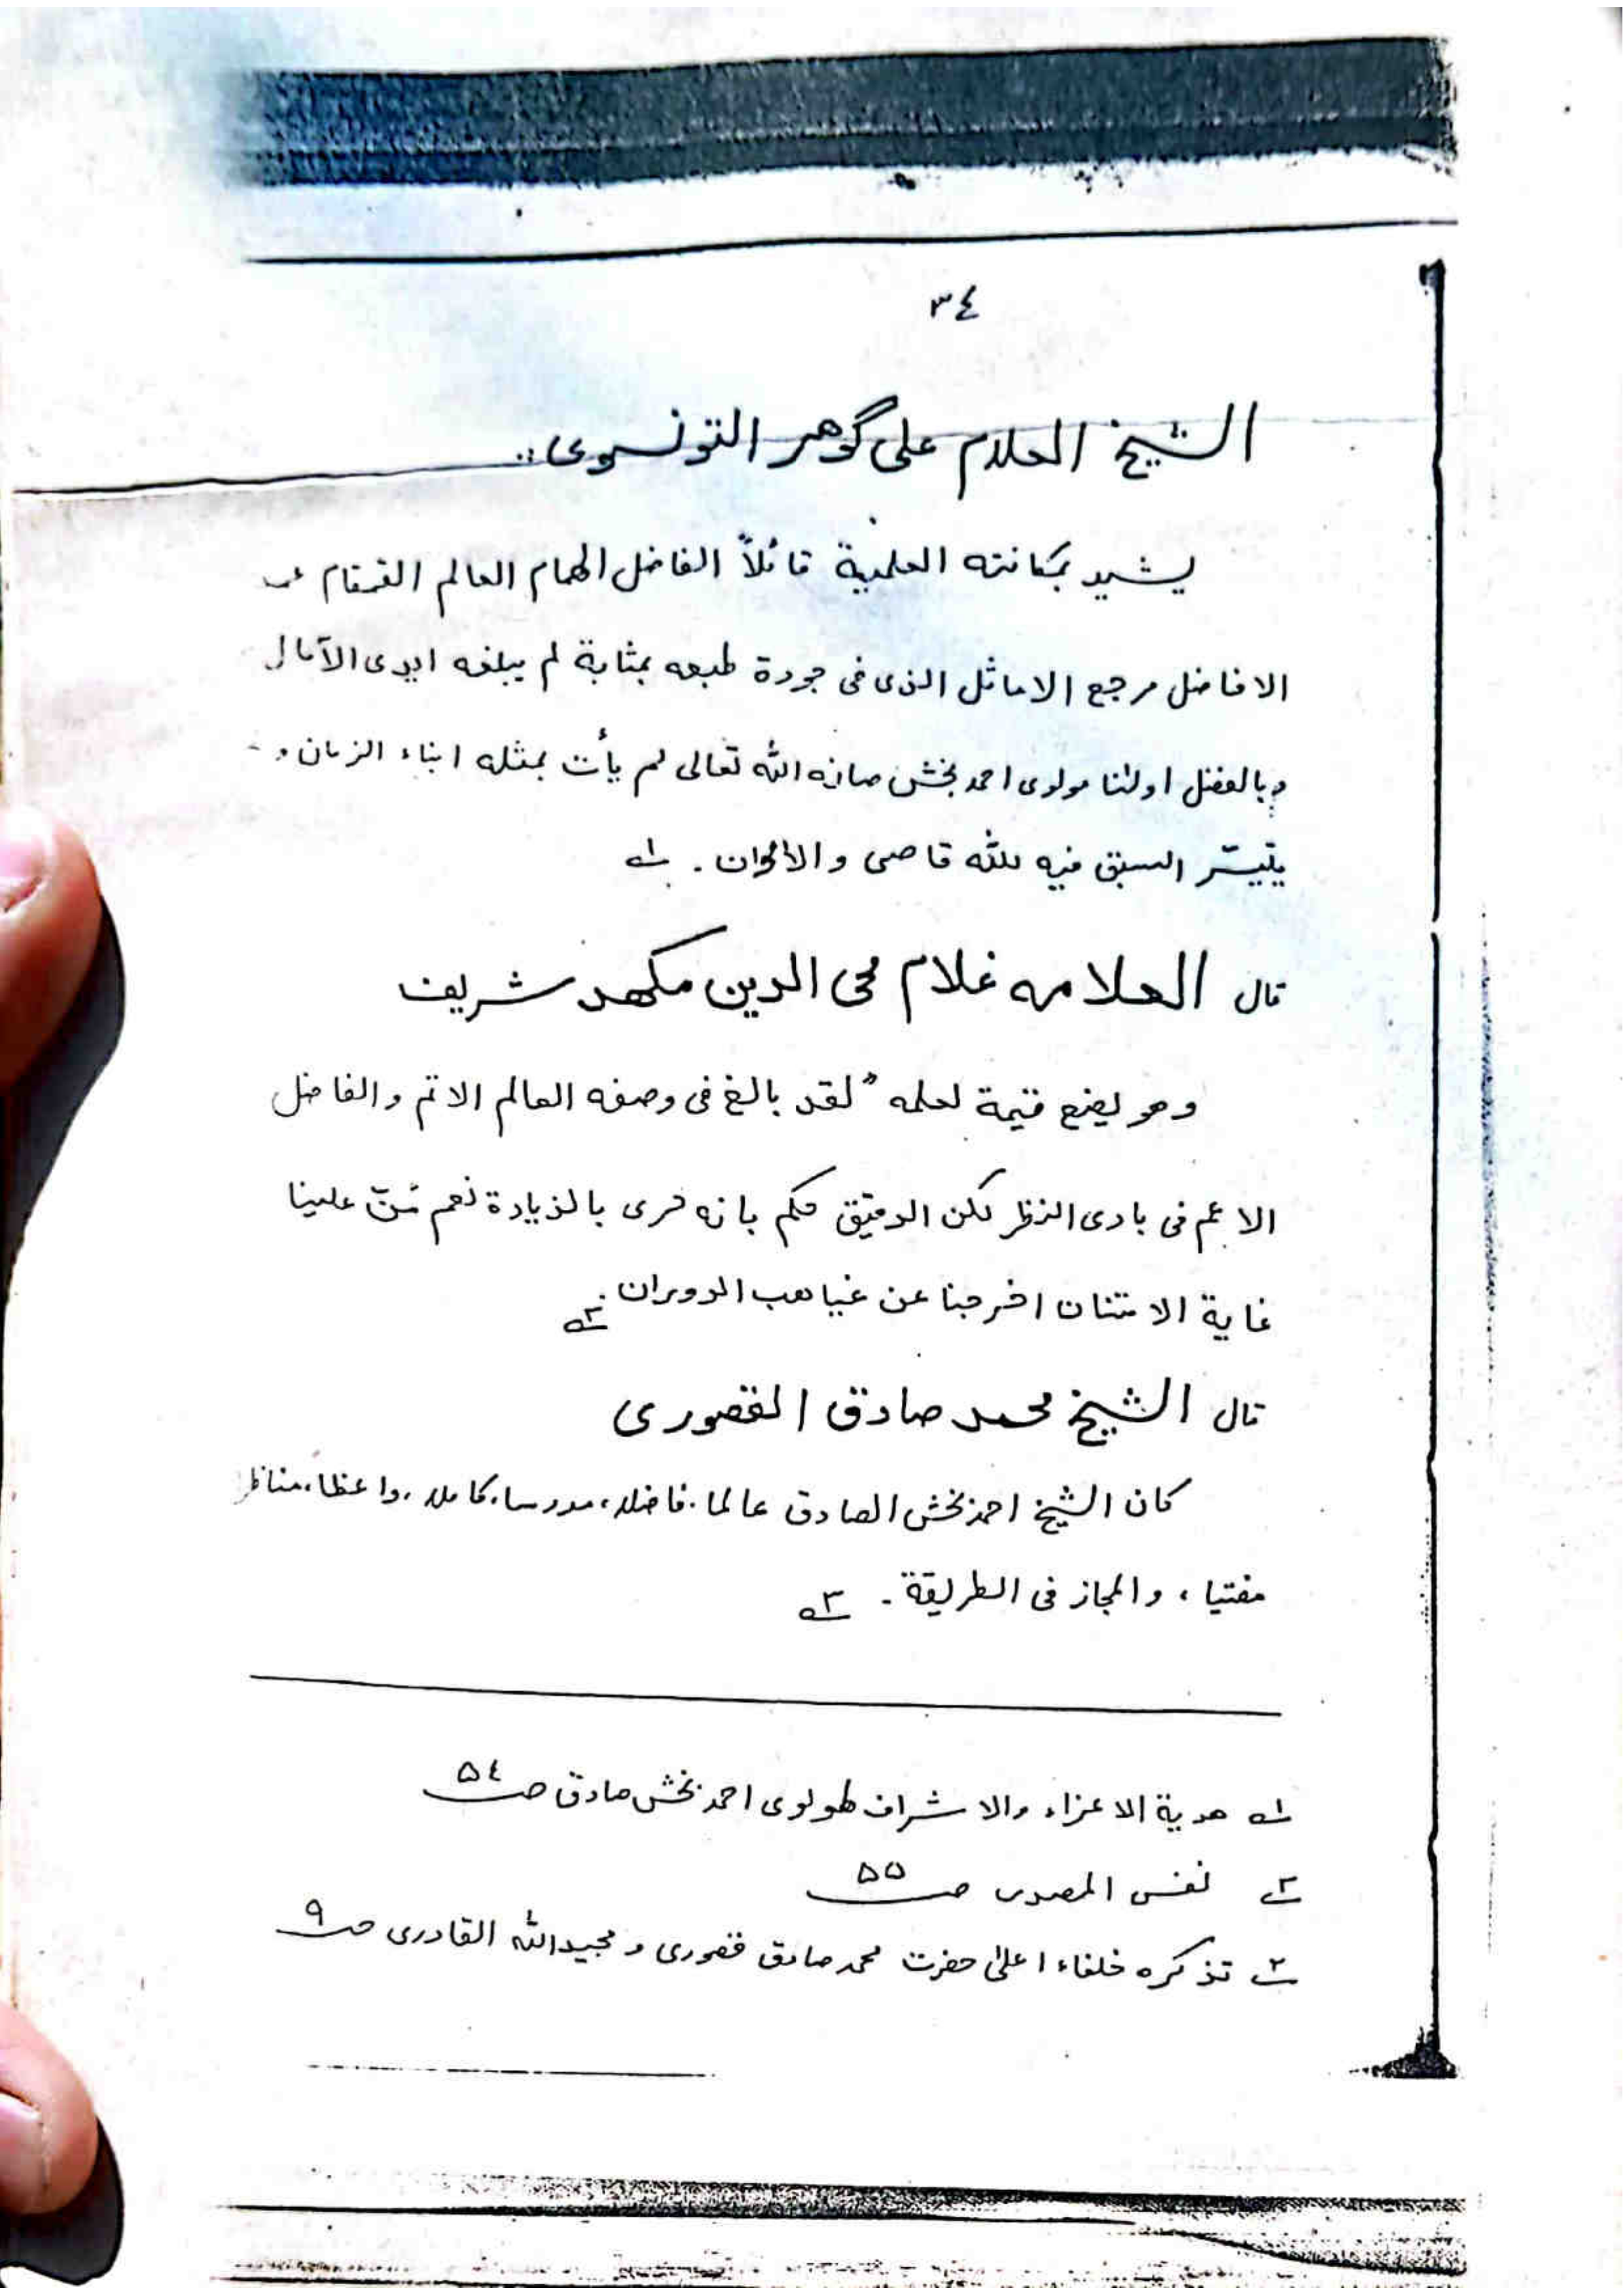 ٣٤
الشيخ العلام على گوهر التونسوى :
يشيد بمكانته العلمية قائلاً الفاضل الهمام العالم القمقام
الافاضل مرجع الاماثل الذى فى جودة طبعه بمثابة لم يبلغه ايدى الآمال
وبالفضل اولنا مولوى احمد بخش صانه الله تعالى لم يأت بمثله ابناء الزمان و
السبق فيه لله قاصى والأ
قال العلامه غلام محى الدين مكهد شريف
وهو يضع قيمة لعلمه " لقد بالغ فى وصفه العالم الاتم والفاضل
الاعم فى بادى النظر لكن الدقيق حكم بانه حرى بالزيادة نعم مُنّ علينا
غاية الامتنان اخرجنا عن غياهب الدوران ٢ـه
قال الشيخ محمد صادق القصورى
كان الشيخ احمد بخش الصادق عالما، فاضلا، مدرسا، كاملا، واعظا، مناظرا
مفتيا، والمجاز فى الطريقة ۔ ٣ـه
١ـه هدية الاعزاء والاشراف لمولوى احمد بخش صادق صـ ٥٤
٢ـه نفس المصدر صـ ٥٥
٣ـه تذكره خلفاء اعلىٰ حضرت محمد صادق قصورى و مجيد الله القادرى صـ ٩